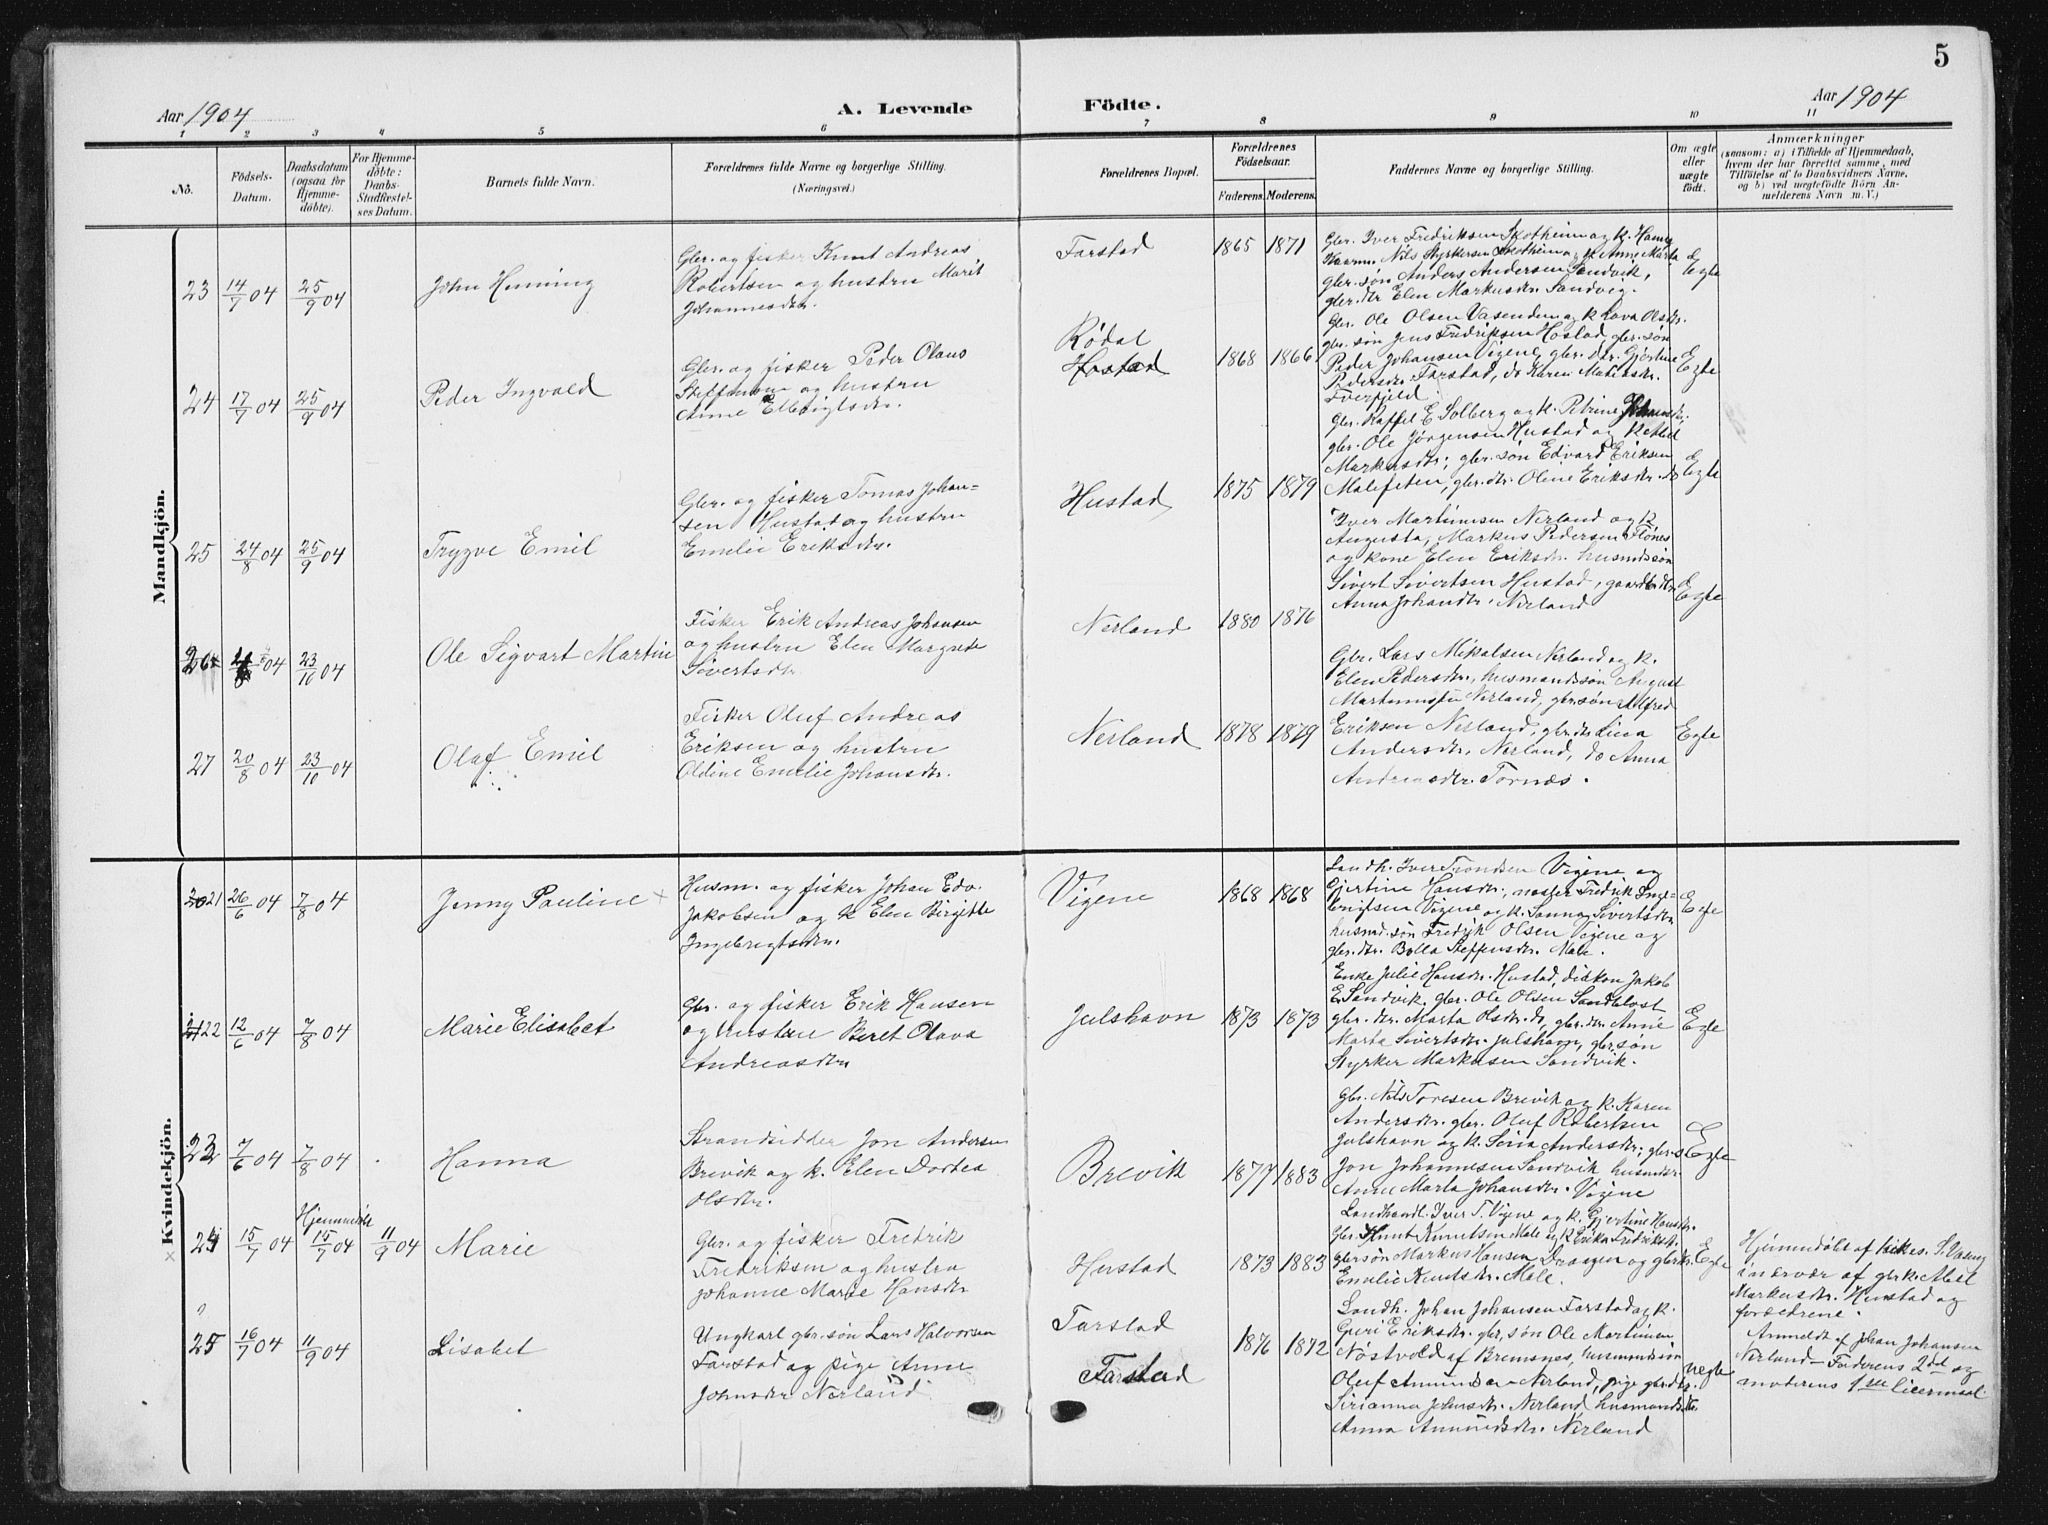 5
Aar 1904
A. Levende
Födte.
Aar 1904
1 2 3 4 5 6 7 8 9 10 11
No.
Födsels-
Datum.
Daabsdatum
(ogsaa for
Hjemme-
døbte).
For Hjemme-
döbte:
Daabs-
Stadfæstel-
ses Datum.
Barnets fulde Navn.
Forældrenes fulde Navne og borgerlige Stilling.
(Næringsvei.)
Forældrenes Bopæl.
Forældrenes
Födselsaar.
Faderens. Moderens.
Faddernes Navne og borgerlige Stilling.
Om ægte
eller
uægte
födt.
Anmærkninger
(saasom: a) i Tilfælde af Hjemmedaab,
hvem der har forrettet samme, med
Tilföielse af to Daabsvidners Navne,
og b) ved uægtefödte Börn An-
melderens Navn m. V.)
Mandkjön.
23 14/7 04 25/9 04
John Henning
Gbr. og fisker Knut Andreas
Robertsen og hustru Marit
Johannesdtr.
Farstad
1865 1871
Gbr. Iver Fredriksen Skotheim og k. Hanna
Nils Styrkersen Skotheim og k. Anne Marta
gbr. søn Anders Andersen Sandvik,
gbr. dtr. Elen Markusdtr. Sandvig.
Egte
24 17/7 04 25/9 04
Peder Ingvald
Gbr. og fisker Peder Olaus
Steffensen og hustru
Anne
Rødal
Hostad
1868 1866
Gbr. Ole Olsen Vasenden og k. Lova Olsdr.
gbr. søn Jens Fredriksen Hostad, gbr. søn
Peder Johansen Vigene, gbr. dtr. Gjertine
Pedersdtr. Farstad, do Karen
Tverfjeld.
Egte
25 24/8 04 25/9 04
Trygve Emil
Gbr. og fisker Tomas Johan-
sen Hustad og hustru
Emelie Eriksdtr.
Hustad
1875 1879
Gbr. Kaffel E. Solberg og k. Petrine
gbr. Ole Jørgensen Hustad og k. Abel
Markusdtr; gbr. søn Edvard Eriksen
Malefeten, gbr. dtr. Oline Eriksdtr. do
Egte
26 04 23/10 04
Ole Sigvart Martin
Fisker Erik Andreas Johansen
og hustru Elen Margrete
Sivertsdtr.
Nerland
1880 1876
Iver Martinusen Nerland og k.
Augusta, Markus Pedersen Flønes
og kone Elen Eriksdtr. husmdssøn
Sivert Sivertsen Hustad, gaardbr.dtr.
Anna Johansdtr. Nerland
Egte
27 20/8 04 23/10 04
Olaf Emil
Fisker Oluf Andreas
Eriksen og hustru
Oldine Emelie Johansdtr.
Nerland
1878 1879
Gbr. Lars Mikalsen Nerland og k.
Elen Pedersdtr., husmandssøn August
Martinussen Nerland, gbr. søn Alfred
Eriksen Nerland, gbr. dtr. Lina
Andersdtr. Nerland, do Anna
Andreasdtr. Tornæs.
Egte
Kvindekjön.
21 26/6 04 7/8 04
Jenny Pauline
Husm. og fisker Johan Edv.
Jakobsen og k. Elen Birgitte
Ingebrigtsdtr.
Vigene
1868 1868
Landh. Iver Trondsen Vigene og
Gjertine Hansdtr., Fredrik Inge-
brigtsen Vigene og k. Sanna Sivertsdtr.
husmd. søn Fredrik Olsen Vigene og
gbr. dtr. Bolla Steffensdtr. Male.
Egte
22 12/6 04 7/8 04
Marie Elisabet
Gbr. og fisker Erik Hansen
og hustru Beret Olava
Andreasdtr.
Julshavn
1873 1873
Enke Julie Hansdtr. Hustad, diakon Jakob
E. Sandvik, gbr. Ole Olsen Sandblost
gbr. dtr. Marta Olsdtr. do, gbr. dtr. Anne
Marta Sivertsdtr. Julshavn, gbr. søn
Styrker Markusen Sandvik.
Egte
23 7/6 04 7/8 04
Hanna
Strandsidder Jon Andersen
Brevik og k. Elen Dortea
Olsdtr.
Brevik
1877 1883
Gbr. Nils Toresen Brevik og k. Karen
Andersdtr. gbr. Oluf Robertsen
Julshavn og k. Seria Andersdtr; gbr. s.
Jon Johannesen Sandvik husmdtr.
Anne Marta Johansdtr. Vigene
Egte
24 15/7 04 Hjemmedøbt 15/7 04 11/9 04
Marie
Gbr. og fisker Fredrik
Fredriksen og hustru
Johanne Marie Hansdtr
Hustad
1873 1883
Landhandl. Iver T. Vigene og k. Gjertine Hansdtr.
Gbr. Knut Knutsen Male og k. Erika Fredriksd.
gbr søn Markus Hansen Draagen og gbr. dtr.
Emelie Knutsdtr. Male.
Egte
Hjemmedøbt af S. Vaseng
i nærvær af gbrk. Abel
Markusdtr. Hustad og
forældrene.
25 16/7 04 11/9 04
Lisabet
Ungkarl gbr. søn Lars Halvorsen
Farstad og pige Anne
Johnsdtr Nerland
Farstad
Farstad
1876 1872
Landh. Johan Johansen Farstad og k.
Guri Eriksdtr. gbr, søn Ole Martinian
Nøstvold af Bremsnes, husmandssøn
Oluf Nerland, pige gbr. dtr.
Sirianna Johnsdtr. Nerland husmandsdtr.
Anna Amundsdtr. Nerland
uegte
Anmeldt af Johan Johansen
Nerland – Faderens 2det og
moderens 1ste leiermaal